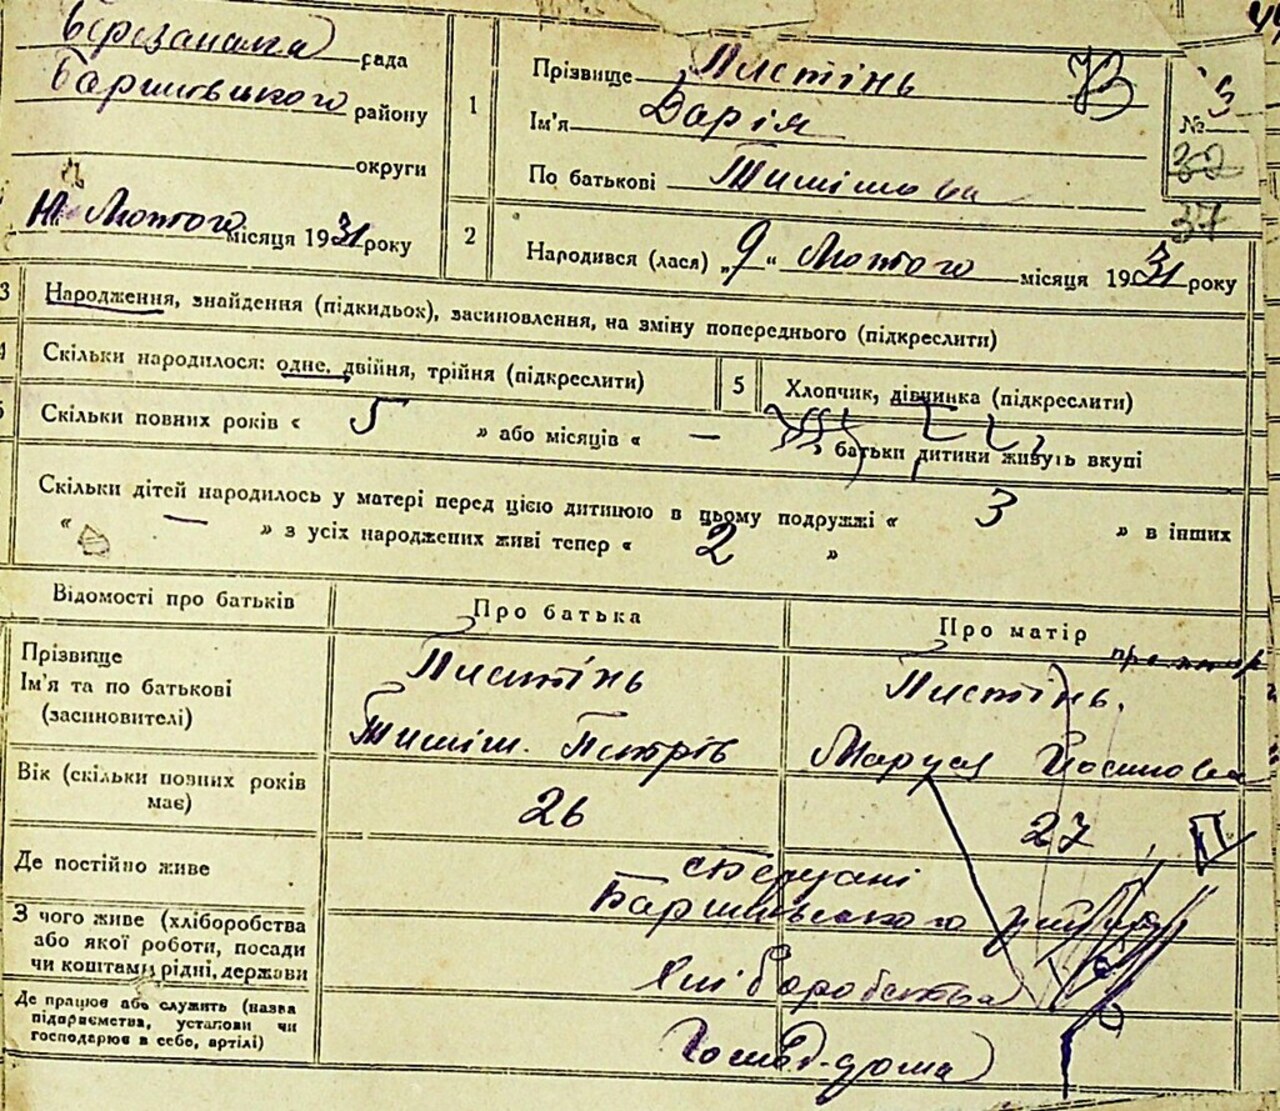 Березанська рада
Баришівського району
округи
10 Лютого місяця 1931 року
1
Прізвище Пистінь
Ім'я Дарія
По батькові Тимішова
№ 5
32
37
2
Народився (лася) „9" Лютого місяця 1931 року
3
Народження, знайдення (підкидьок), засиновлення, на зміну попереднього (підкреслити)
4
Скільки народилося: одне, двійня, трійня (підкреслити)
5
Хлопчик, дівчинка (підкреслити)
Скільки повних років « 5 » або місяців « — » батьки дитини живуть вкупі
Скільки дітей народилось у матері перед цією дитиною в цьому подружжі « 3 » в інших
« — » з усіх народжених живі тепер « 2 »
Відомості про батьків
Про батька
Про матір
Прізвище
Ім'я та по батькові
(засиновителі)
Пистінь
Тиміш. Петрів
Пистінь.
Маруся Йосипова
Вік (скільки повних років
має)
26
27
Де постійно живе
Баришівського району
З чого живе (хліборобства
або якої роботи, посади
чи коштами рідні, держави
Хліборобства
Де працює або служить (назва
підприємства, установи чи
господарює в себе, артілі)
Господ. дома